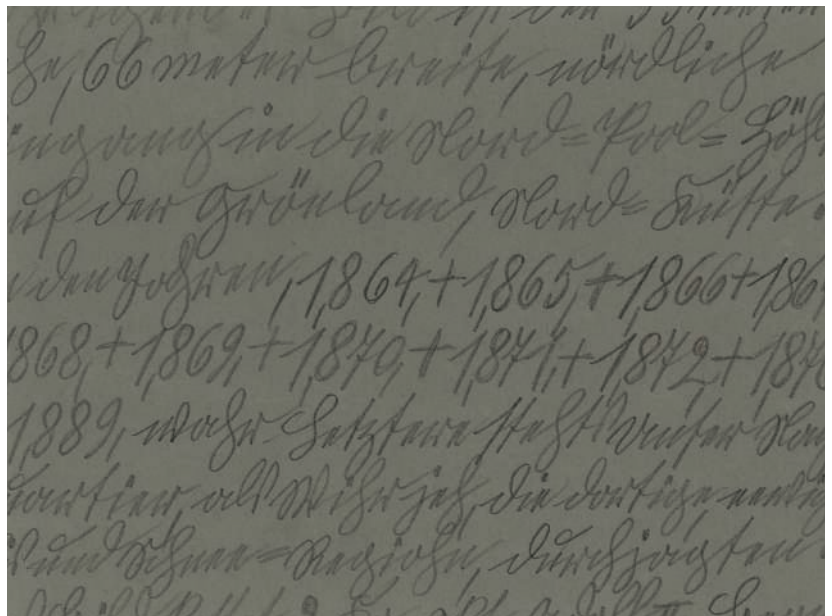 he, 66 meter breite, nördliche
ingang in die Nord=Pool=Höhl
uf der Grönland, Nord=Küste.
den Johren, 1,864,+1,865,+1,866+1,86
868,+1,869,+1,870,+1,871,+1,872,+187
1,889, wahr letztere stehts unser Na
uartier, als Wihr jeh, die dortige, eewig
und Schnee=Regiohn, durchjagten.